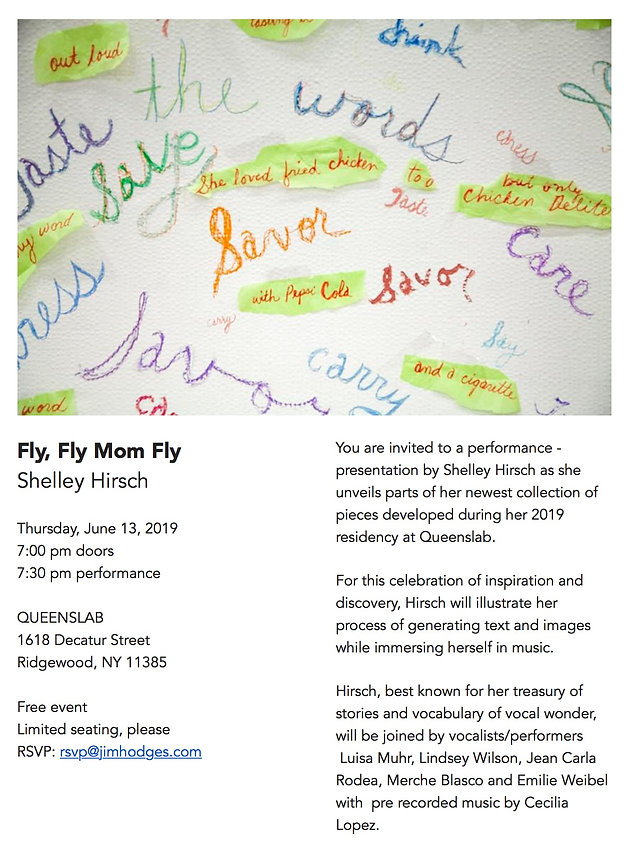 tasting is
out loud
drink
the
words
taste
Save
caress
She loved fried chicken
too
but only
Chicken Delite
Taste
my word
Savor
Care
caress
with Pepsi Cola
Savor
carry
Say
Savor
carry
and a cigarette
word
Fly, Fly Mom Fly
Shelley Hirsch
Thursday, June 13, 2019
7:00 pm doors
7:30 pm performance
QUEENSLAB
1618 Decatur Street
Ridgewood, NY 11385
Free event
Limited seating, please
RSVP: rsvp@jimhodges.com
You are invited to a performance -
presentation by Shelley Hirsch as she
unveils parts of her newest collection of
pieces developed during her 2019
residency at Queenslab.
For this celebration of inspiration and
discovery, Hirsch will illustrate her
process of generating text and images
while immersing herself in music.
Hirsch, best known for her treasury of
stories and vocabulary of vocal wonder,
will be joined by vocalists/performers
Luisa Muhr, Lindsey Wilson, Jean Carla
Rodea, Merche Blasco and Emilie Weibel
with pre recorded music by Cecilia
Lopez.